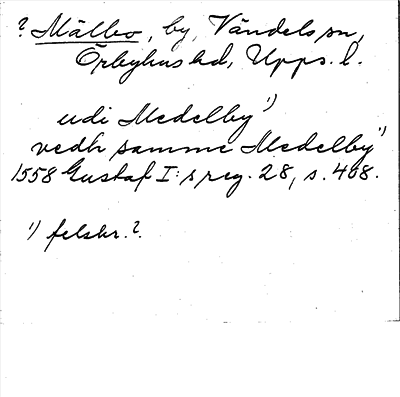 ? Mälbo, by, Vändels sn,
Örbyhus hd, Upps. l.
udi Medelby¹⁾
vedh samme Medelby¹⁾
1558 Gustaf I:s reg. 28, s. 408.
¹⁾ felskr.?